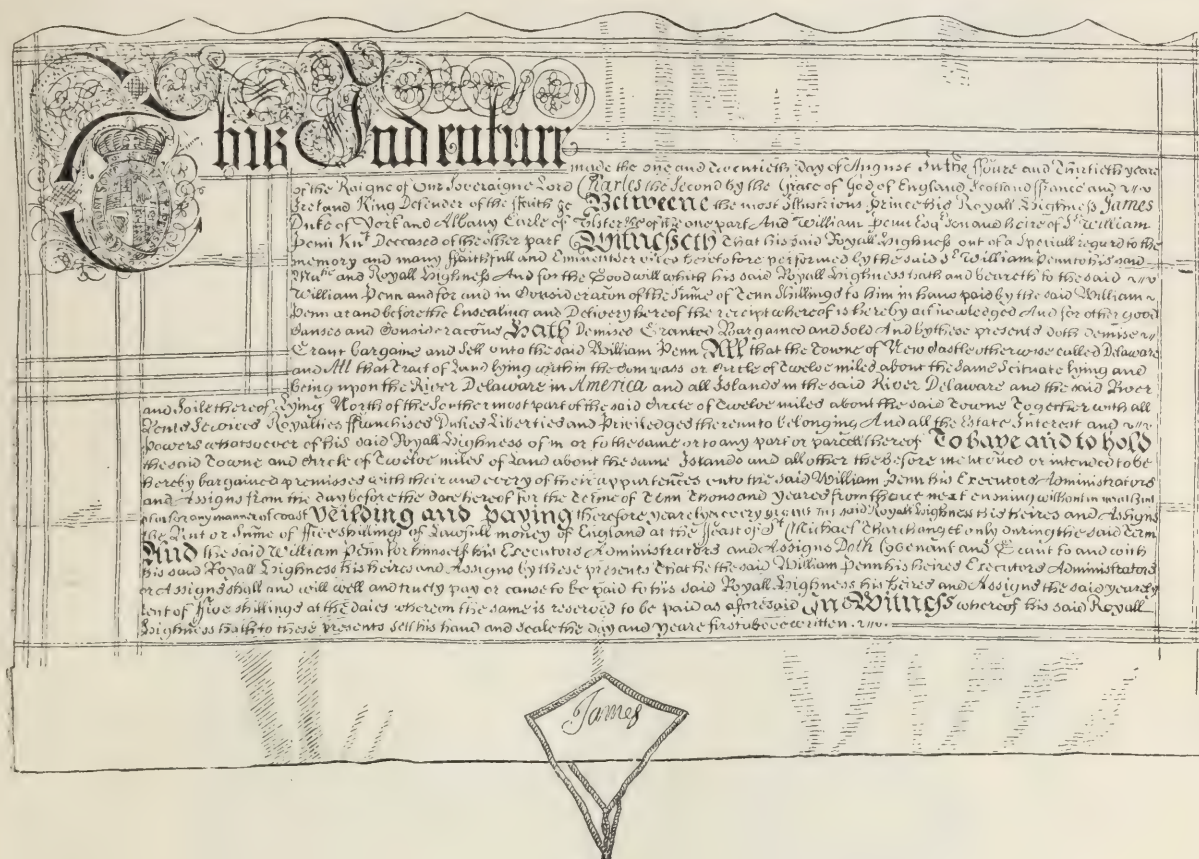 This Indenture
made the one and Twentieth day of August In the ffoure and Thirtieth yeare
of the Raigne of Our Soveraigne Lord Charles the Second by the Grace of God of England Scotland ffrance and
Ireland King Defender of the ffaith &c Betweene the most Illustrious Prince his Royall Highness James
Duke of York and Albany Earle of Ulster &c of the one part And William Penn Esqr Son and heire of Sr William
Penn Knt Deceased of the other part Witnesseth That his said Royall Highness out of a Speciall regard to the
memory and many ffaithfull and Eminent Services heretofore performed by the said Sr William Penn to his said
Matie and Royall Highness And for the Goodwill which his said Royall Highness hath and beareth to the said
William Penn and for and in Consideracon of the Sume of Tenn Shillings to him in hand paid by the said William
Penn at and before the Ensealing and Delivery hereof the receipt whereof is hereby acknowledged And for other good
Causes and Consideracons Hath Demised Granted Bargained and Sold And by these presents doth Demise
Grant bargaine and Sell unto the said William Penn All that the Towne of Newcastle otherwise called Delaware
and All that Tract of Land lying within the Compass or Circle of Twelve miles about the same Scituate lying and
being upon the River Delaware in America and all Islands in the said River Delaware and the said River
and Soile thereof Lying North of the Southermost part of the said Circle of Twelve miles about the said Towne Together with all
Rents Services Royalties ffranchises Duties Liberties and Priviledges thereunto belonging And all the Estate Interest and
Powers whatsoever of his said Royall Highness of in or to the same or to any part or parcell thereof To have and to hold
the said Towne and Circle of Twelve miles of Land about the same Islands and all other the Before mentioned or intended to be
hereby bargained premisses with their and every of their appurtences unto the said William Penn his Executors Administrators
and Assigns from the day before the date hereof for the Terme of Tenn Thousand Yeares from thence next ensuing without
for any manner of Yeilding and Paying therefore yearly and every yeare his said Royall Highness his heires and Assigns
the Rent or Sume of ffive Shillings of Lawfull money of England at the ffeast of St Michael Tharchangel only during the said Term
And the said William Penn for himself his Executors Administrators and Assigns Doth Covenant and Grant to and with
his said Royall Highness his heires and Assigns by these presents That he the said William Penn his heires Executors Administrators
or Assigns shall and will well and truely pay or cause to be paid to his said Royall Highness his heires and Assigns the said yearely
rent of ffive shillings at the Daies whereon the same is reserved to be paid as aforesaid In Witness whereof his said Royall
Highness hath to these presents sett his hand and Seale the day and yeare first above written.
James